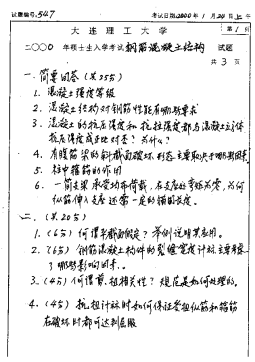 试题编号: 547
考试日期2000年1月24日上午
大连理工大学
第1页
二〇〇〇年硕士生入学考试 钢筋混凝土结构 试题
共 3 页
一. 简要回答 (共25分)
1. 混凝土强度等级
2. 混凝土结构对钢筋性能有哪些要求
3. 混凝土的抗压强度和抗拉强度都与混凝土立方体
抗压强度成正比对否? 为什么?
4. 有腹筋梁的斜截面破坏形态主要取决于哪些因素
5. 柱中箍筋的作用
6. 一简支梁承受均布荷载, 在支座处弯矩为零, 为何
纵筋伸入支座还需一定的锚固长度.
二. (共20分)
1. (6分) 何谓平截面假定? 举例说明其应用.
2. (6分) 钢筋混凝土构件的裂缝宽度计算主要考虑
了哪些影响因素.
3. (4分) 何谓剪. 扭相关性? 规范是如何处理的.
4. (4分) 抗扭计算时如何保证受扭纵筋和箍筋
在破坏时都可达到屈服